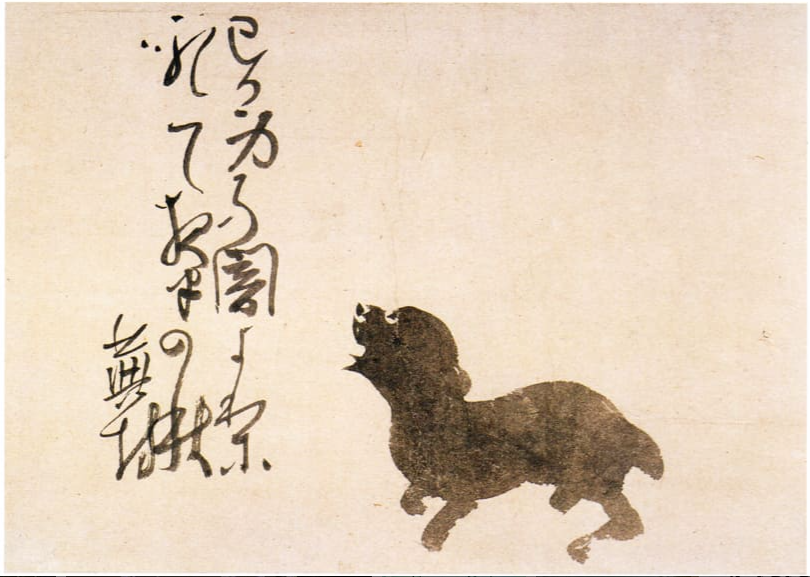 己か身の闇より
吼て夜半の秋
蕪村